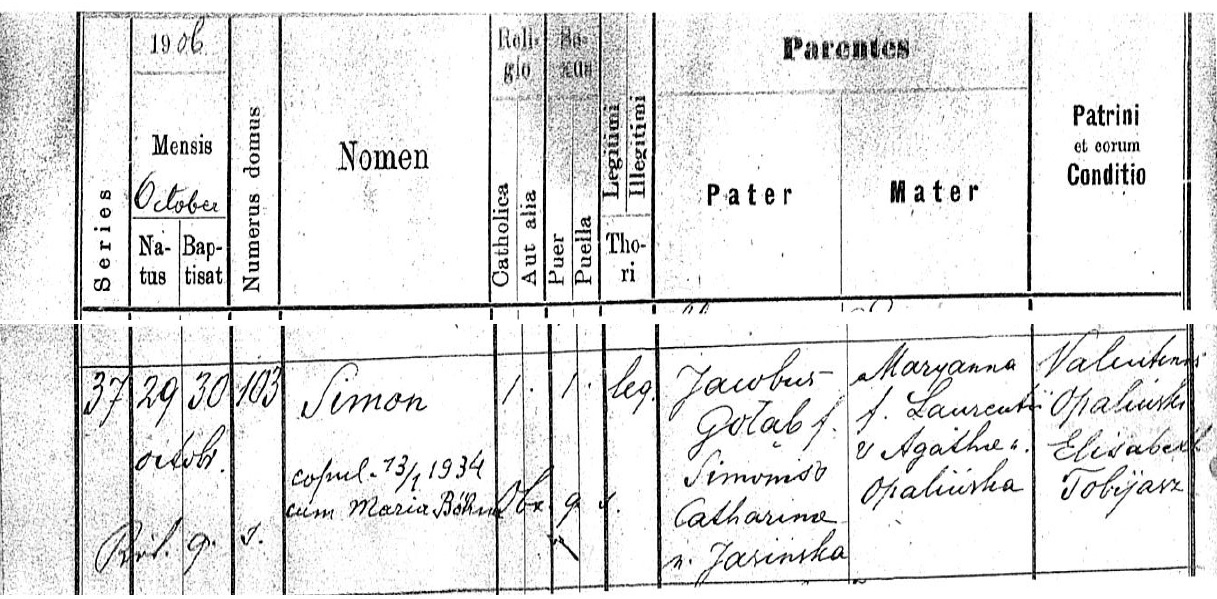 1906
Mensis
October
Na-
tus
Bap-
tisat
Series
Numerus domus
Nomen
Reli-
gio
Catholica
Aut alia
Se-
xus
Puer
Puella
Legitimi
Illegitimi
Tho-
ri
Parentes
Pater
Mater
Patrini
et eorum
Conditio
37 29 30 103 Simon 1. 1. leg.
octobr.
copul. 13/1 1934
cum Maria
Jacobus
Gołąb f.
Simonis
Catharina
n. Jasinska
Maryanna
f. Laurentii
Agathae n.
Opalińska
Valentinus
Opaliński
Elisabeth
Tobijasz